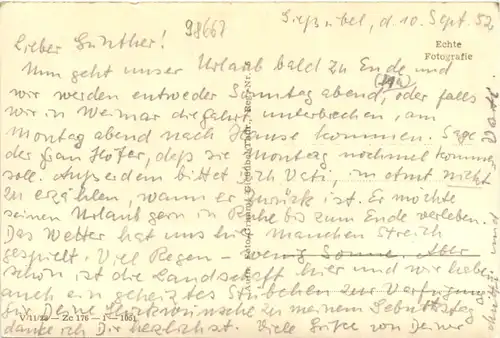 98667
Gießübel, d. 10. Sept. 52
Echte
Fotografie
Lieber Günther!
Nun geht unser Urlaub bald zu Ende und
wir werden entweder Sonntag abend, oder falls
wir in Weimar die Fahrt unterbrechen, am
Montag abend nach Hause kommen. Sage
der Frau Höfer, daß sie Montag nochmal kommen
soll. Außerdem bittet Dich Vati, nicht
zu erzählen, wann er zurück ist. Er möchte
seinen Urlaub gern in Ruhe bis zum Ende verleben.
Das Wetter hat uns hier manchen Streich
gespielt. Viel Regen – wenig Sonne. Aber
schön ist die Landschaft hier und wir haben
auch ein geheiztes Stübchen zur Verfügung.
Für Deine Glückwünsche zu meinem Geburtstag
danke ich Dir herzlichst. Viele Grüße von Deiner
V/11/28 — Zc 176 — 1 — 1951